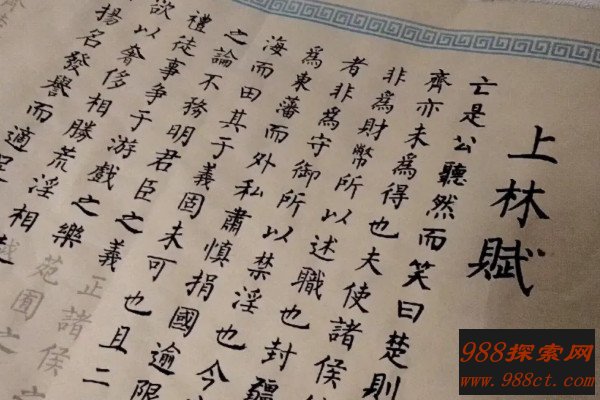 上林賦
亡是公聽然而笑曰楚則
齊亦未為得也夫使諸侯
非為財幣所以述職也封疆
者非為守御所以禁淫也今
為東藩而外私肅慎捐國逾限
海而田其于義固未可也且二
之論不務明君臣之義正諸侯
禮徒事争于游戲之樂苑囿之
欲以奢侈相勝荒淫相越
揚名發譽而適足
988探索网
www.988ct.com